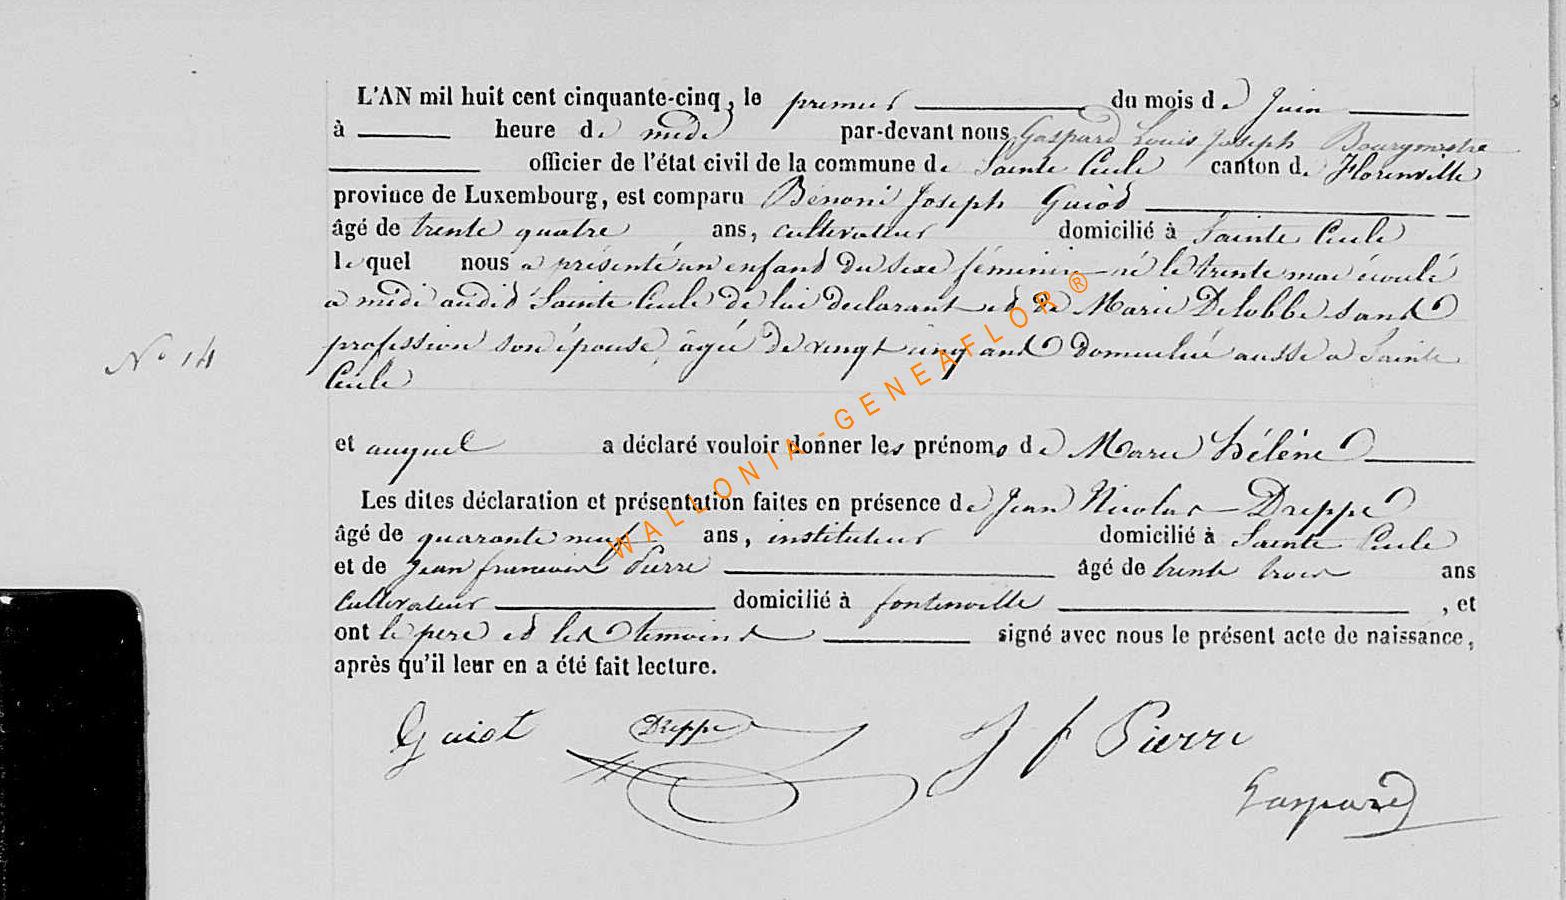 L'AN mil huit cent cinquante-cinq, le premier du mois de Juin
à heure de midi par-devant nous Gaspard Louis Joseph Bourgmestre
officier de l'état civil de la commune de Sainte Cécile canton de Florenville
province de Luxembourg, est comparu Bénoni Joseph Guiot
âgé de trente quatre ans, cultivateur domicilié à Sainte Cécile
lequel nous a présenté un enfant du sexe féminin né le trente mai écoulé
a midi audit Sainte Cécile de lui declarant et de Marie Delobbe sans
profession son épouse, âgée de vingt cinq ans domiciliée aussi a Sainte
Cécile
N° 14
et auquel a déclaré vouloir donner les prénoms de Marie Hélène
Les dites déclaration et présentation faites en présence de Jean Nicolas Dreppe
âgé de quarante neuf ans, instituteur domicilié à Sainte Cécile
et de Jean francois Pierre âgé de trente trois ans
Cultivateur domicilié à fontenoille, et
ont le pere et les temoins signé avec nous le présent acte de naissance,
après qu'il leur en a été fait lecture.
Guiot Dreppe J f Pierre
Gaspard
WALLONIA-GENEAFLOR ®